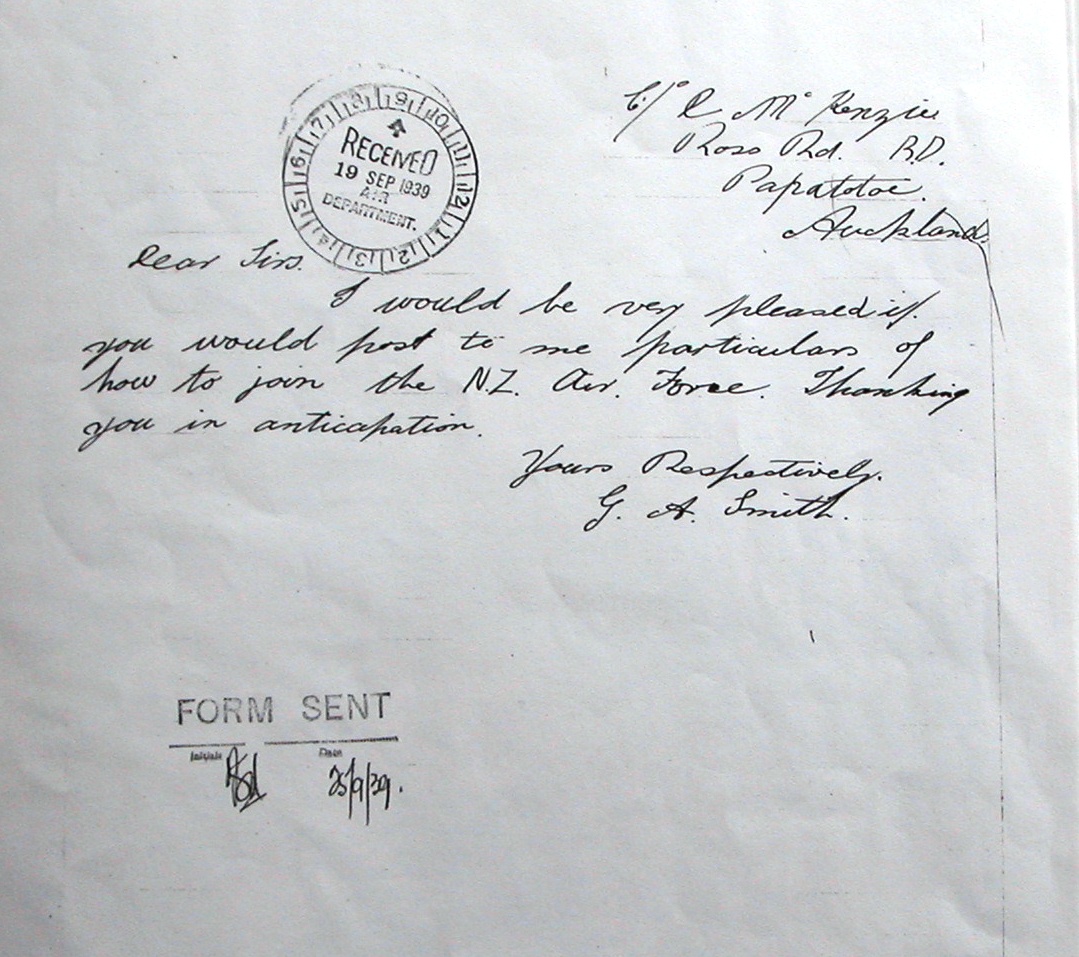 C/o R McKenzie
Ross Rd. R.D.
Papatotoe.
Auckland.
8 9 10 11 12 1 2 3 4 5 6 7
RECEIVED
19 SEP 1939
AIR
DEPARTMENT.
Dear Sirs.
I would be very pleased if.
you would post to me particulars of
how to join the N.Z. Air. Force. Thanking
you in anticapation.
Yours Respectively.
G. A. Smith.
FORM SENT
Initials Date
25/9/39.